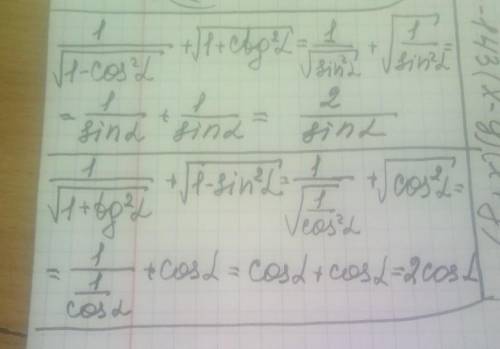 1/√(1-cos²α) + √(1+ctg²α) = 1/√(sin²α) + √(1/sin²α) =
= 1/sinα + 1/sinα = 2/sinα
1/√(1+tg²α) + √(1-sin²α) = 1/√(1/cos²α) + √(cos²α) =
= 1/(1/cosα) + cosα = cosα + cosα = 2cosα